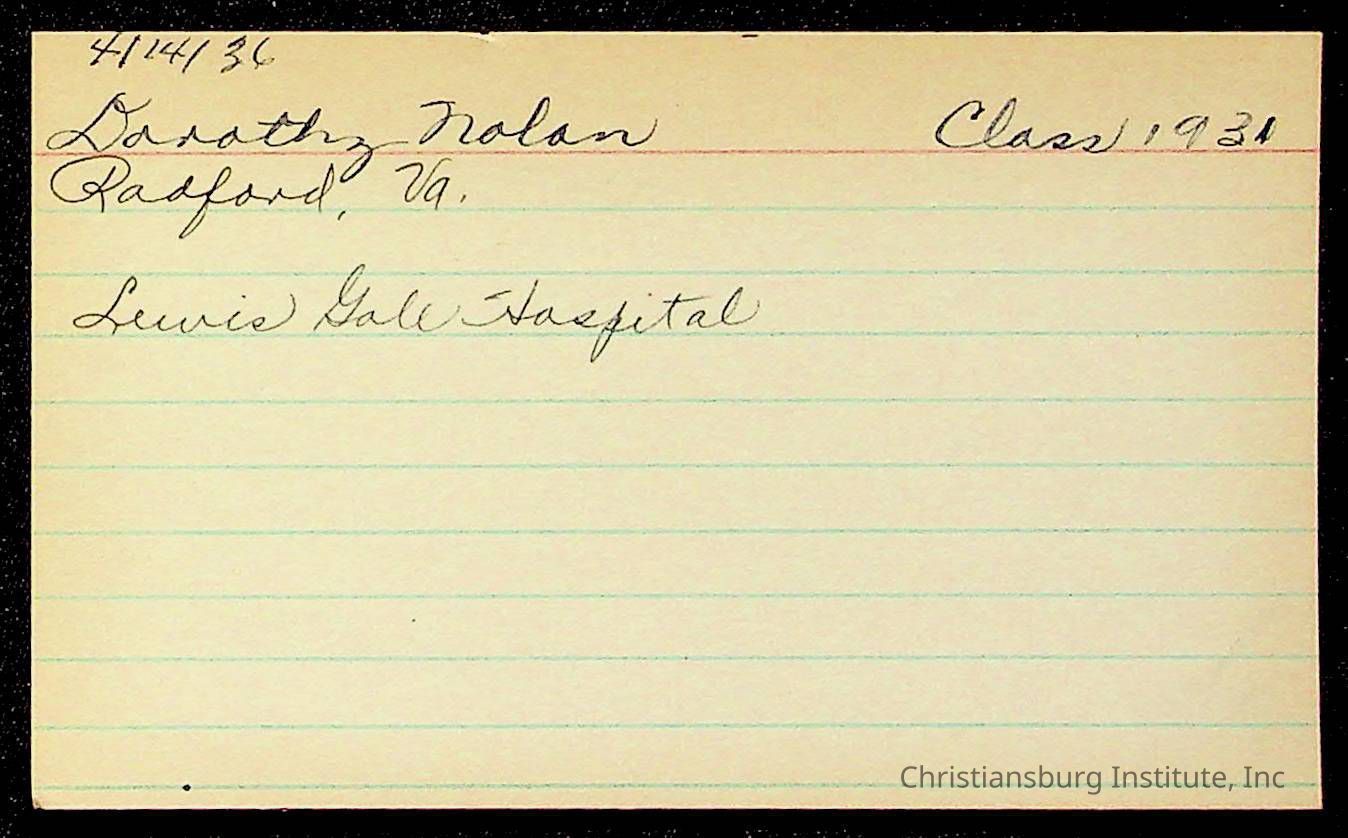 4/14/36
Dorothy Nolan Class 1931
Radford, Va.
Lewis Gale Hospital
Christiansburg Institute, Inc